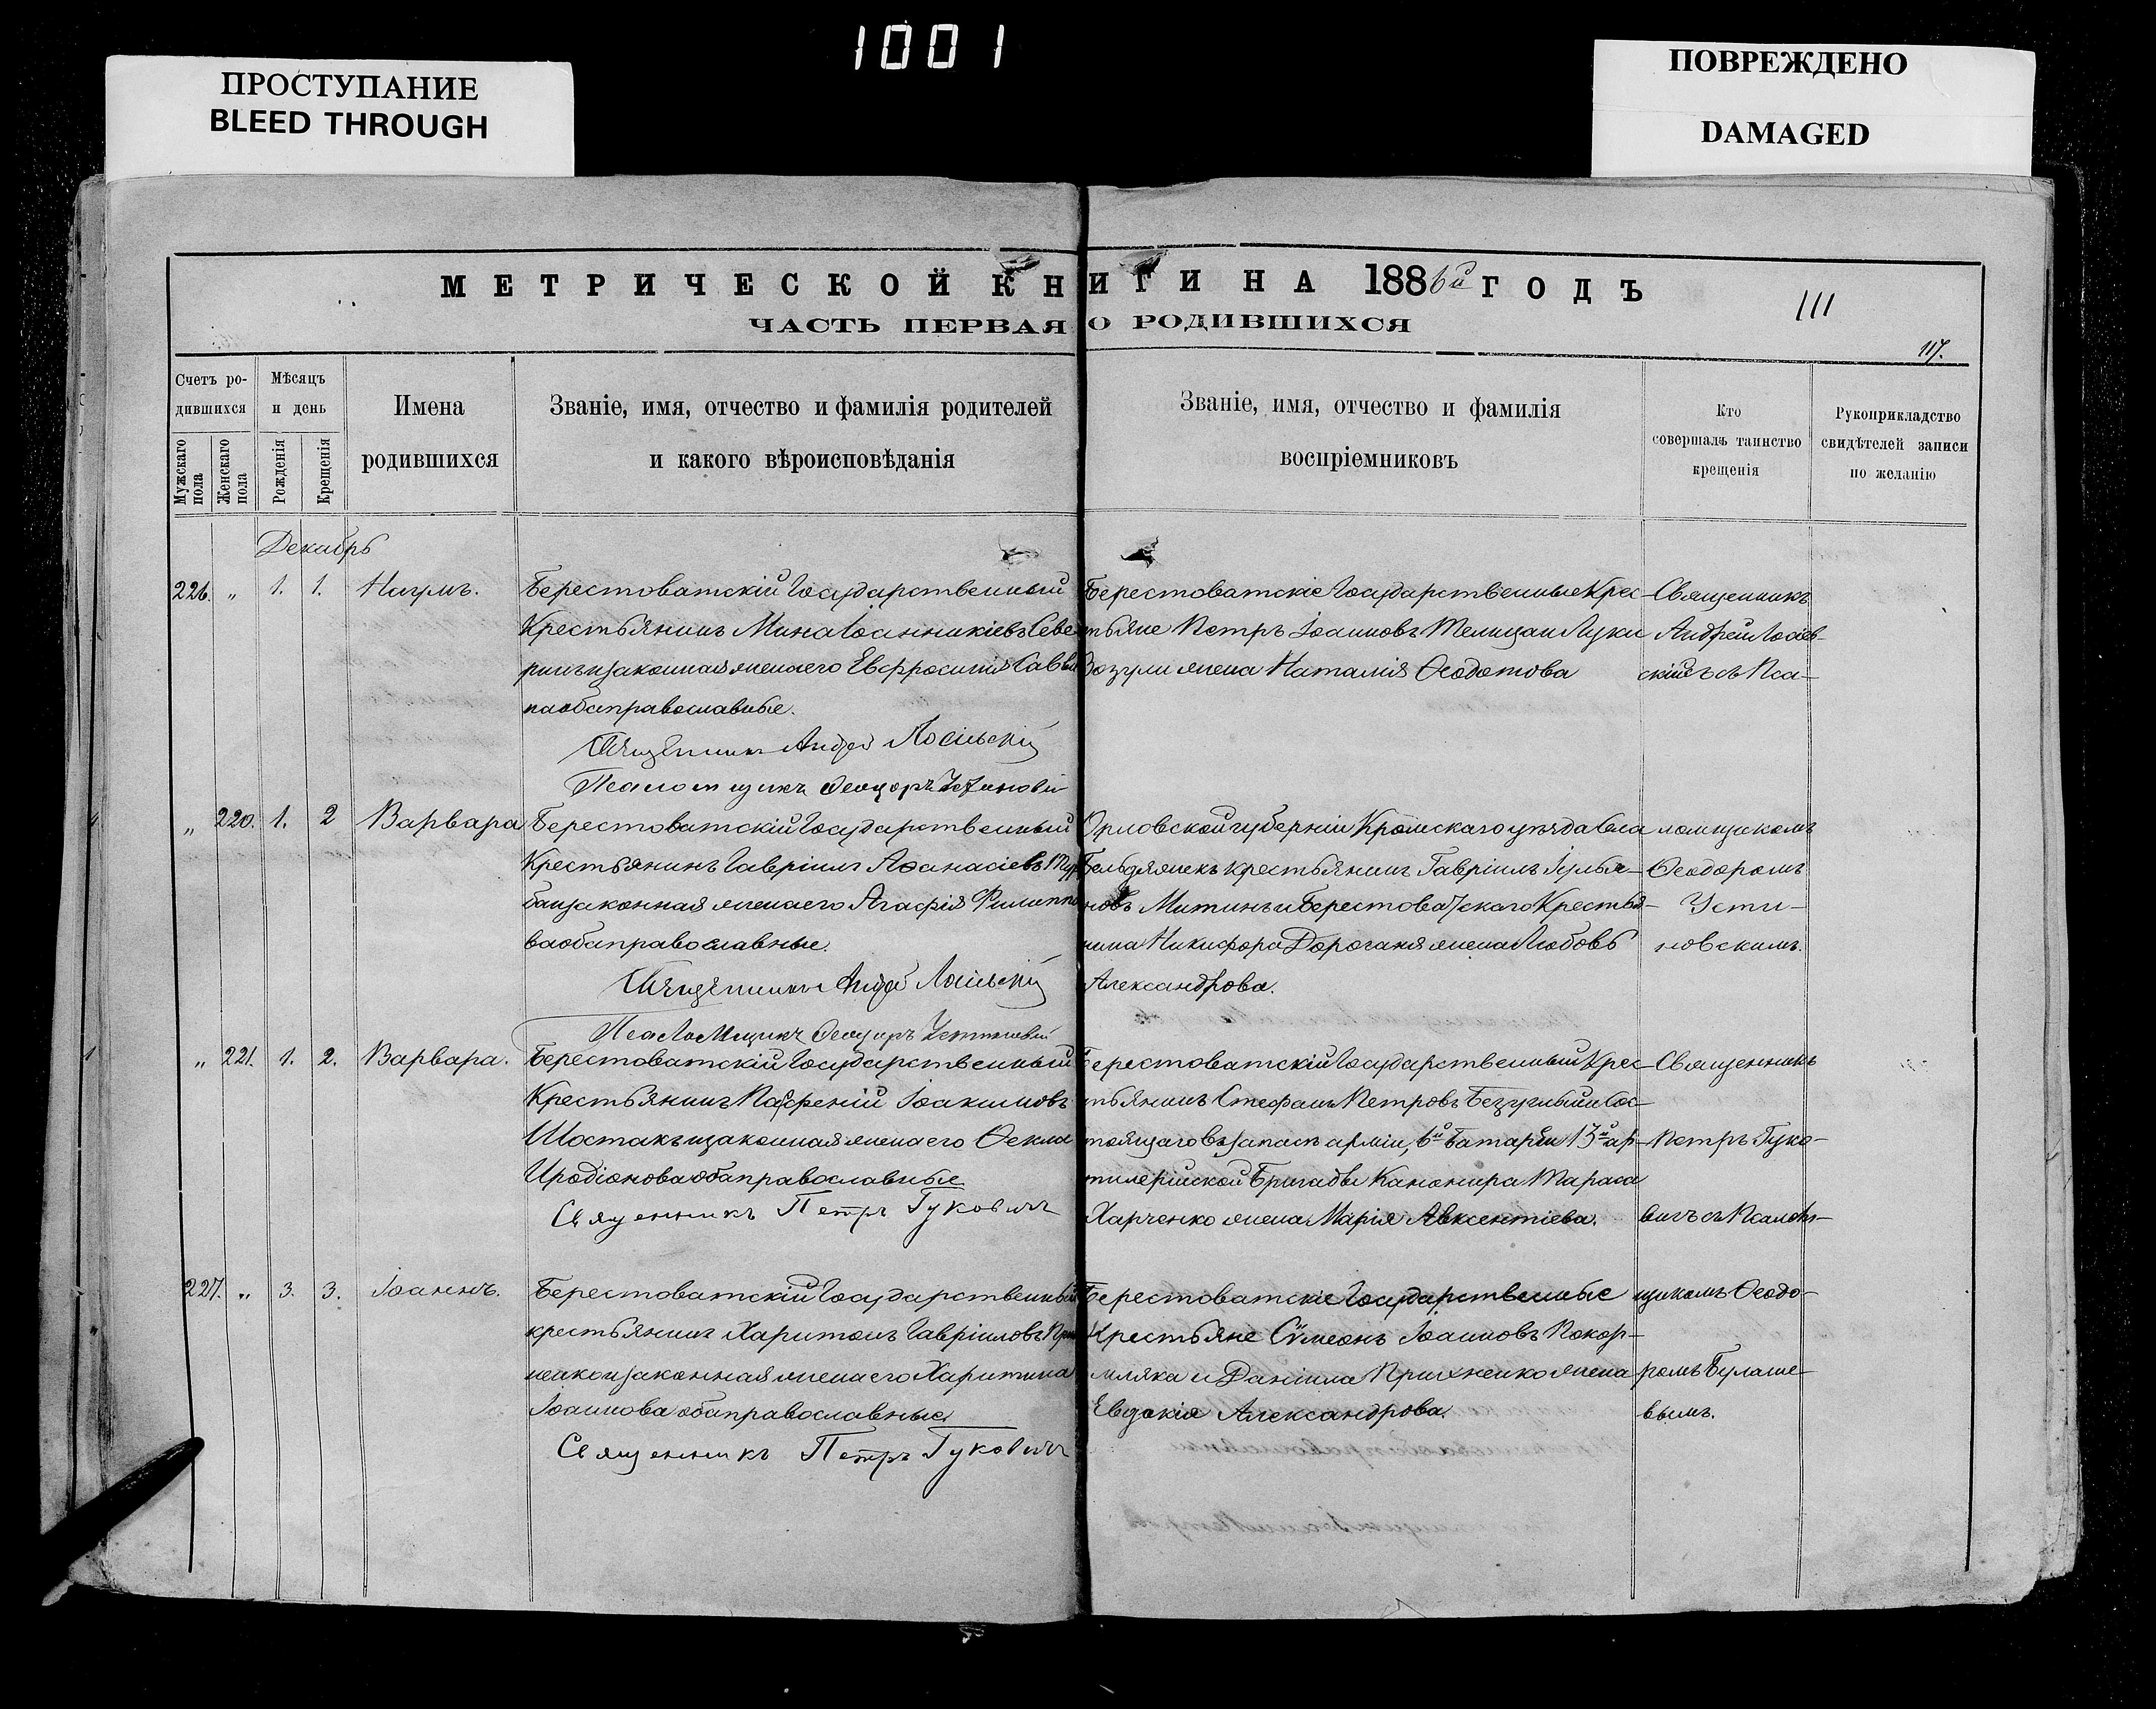 1001
ПРОСТУПАНИЕ
BLEED THROUGH
ПОВРЕЖДЕНО
DAMAGED
МЕТРИЧЕСКОЙ КНИГИ НА 1886й ГОДЪ
ЧАСТЬ ПЕРВАЯ О РОДИВШИХСЯ
111
117.
Счетъ ро-
дившихся
Мужскаго пола
Женскаго пола
Мѣсяцъ
и день
Рожденія
Крещенія
Имена
родившихся
Званіе, имя, отчество и фамилія родителей
и какого вѣроисповѣданія
Званіе, имя, отчество и фамилія
воспріемниковъ
Кто
совершалъ таинство
крещенія
Рукоприкладство
свидѣтелей записи
по желанію
Декабрь
226. „ 1. 1. Наумъ.
Берестоватскій Государственный
Крестьянинъ Мина Іоанникіевъ Севе
ринъ и законная жена его Евфросинія Савви
на оба православные.
Священникъ Андрей
Псаломщикъ Феодоръ
Берестоватскіе Государственные Крес-
тьяне Петръ Іоанновъ Телица и Луки
Зозули жена Наталія Ѳеодотова
Священникъ
Андрей Лосіев-
скій съ Пса-
„ 220. 1. 2 Варвара
Берестоватскій Государственный
Крестьянинъ Гавріилъ Аѳанасіевъ
ба и законная жена его Агафія Филиппо
ва оба православные.
Священникъ Андрей
Псаломщикъ Феодоръ
Орловской губерніи Кромскаго уѣзда Села
крестьянинъ Гавріилъ
новъ Митинъ и Берестоватскаго Крестья-
нина Никифора Дороганя жена Любовь
Александрова.
ломщикомъ
Ѳеодоромъ
Усти-
новскимъ.
„ 221. 1. 2. Варвара.
Берестоватскій Государственный
Крестьянинъ Парфеній Іоакимовъ
Шостакъ и законная жена его Ѳекла
Иродіонова оба православные
Священникъ Петръ Гуковичъ
Берестоватскій Государственный Крес-
тьянинъ Стефанъ Петровъ Безуглый и Сос-
тоящаго въ запасѣ арміи, 6й батареи 13й ар-
тилерійской Бригады Канонира Тараса
Харченко жена Марія Авксентіева.
Священникъ
Петръ Гуко-
вичъ съ Псалом-
227. „ 3. 3. Іоаннъ.
Берестоватскій Государственный
крестьянинъ Харитонъ Гавріиловъ При
ненко и законная жена его Харитина
Іоаннова оба православные
Священникъ Петръ Гуковичъ
Берестоватскіе Государственные
Крестьяне Сѵмеонъ Іоанновъ Покор-
мляка и Даніила Прихненко жена
Евдокія Александрова.
щикомъ Ѳеодо-
ромъ Булаше-
вымъ.